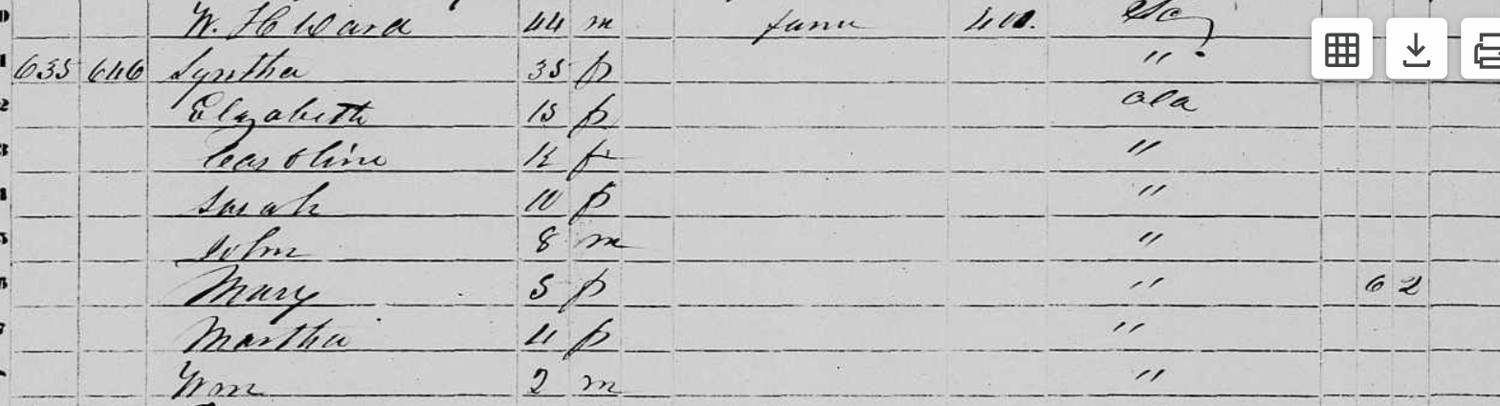 W. H Ward 44 m farm 400. S Ca
635 646 Syntha 35 f "
Elizabeth 15 f Ala
Caroline 12 f "
Sarah 10 f "
John 8 m "
Mary 5 f " 6 2
Martha 4 f "
Wm 2 m "